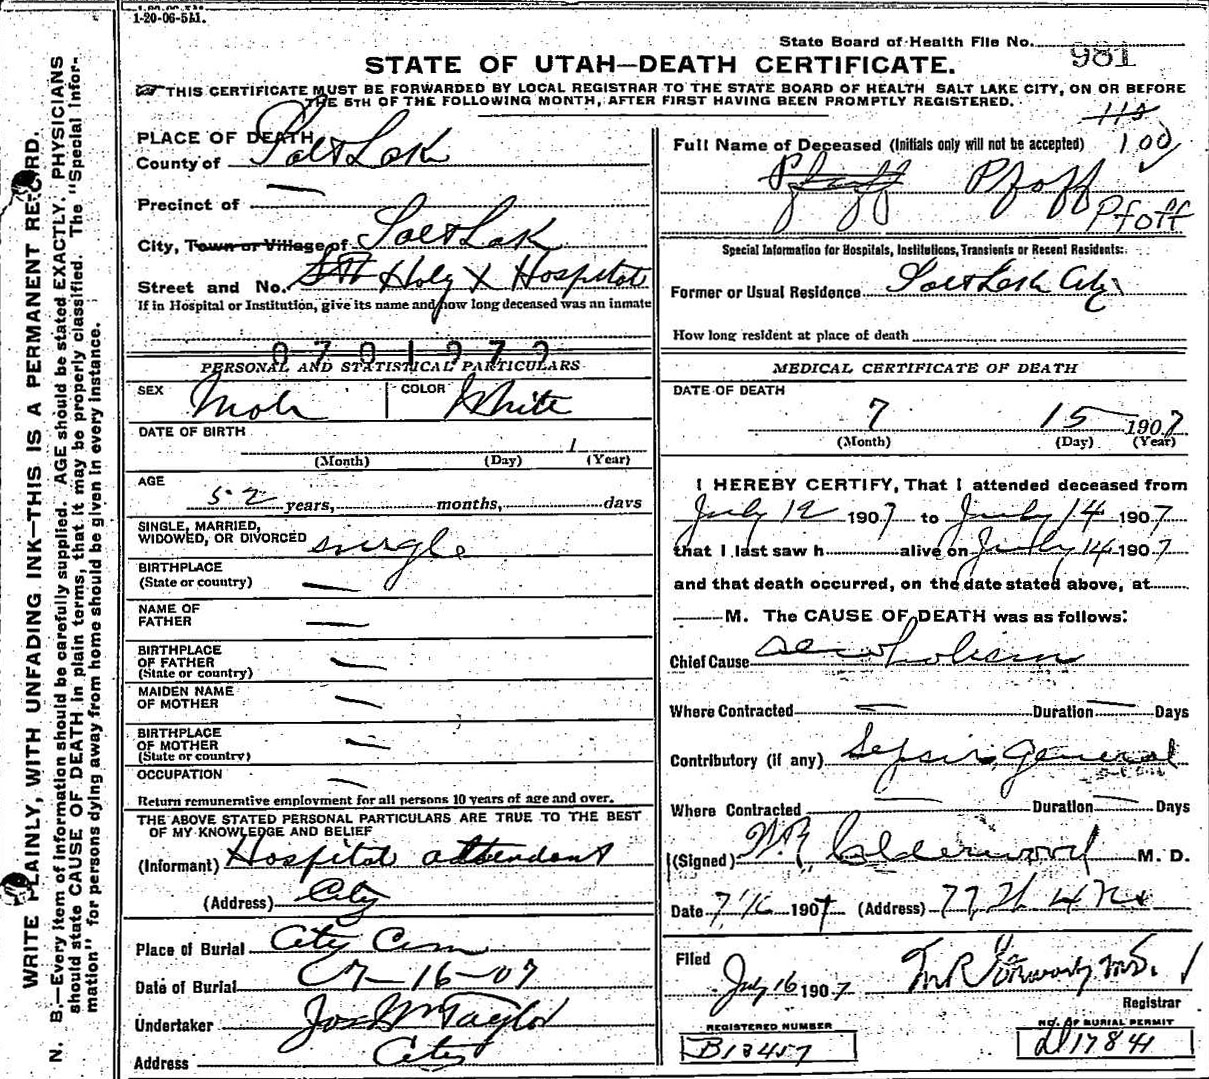 1-20-06-5M.
State Board of Health File No. 981
STATE OF UTAH—DEATH CERTIFICATE.
THIS CERTIFICATE MUST BE FORWARDED BY LOCAL REGISTRAR TO THE STATE BOARD OF HEALTH SALT LAKE CITY, ON OR BEFORE
THE 5TH OF THE FOLLOWING MONTH, AFTER FIRST HAVING BEEN PROMPTLY REGISTERED.
WRITE PLAINLY, WITH UNFADING INK—THIS IS A PERMANENT RECORD.
N. B.—Every item of information should be carefully supplied. AGE should be stated EXACTLY. PHYSICIANS
should state CAUSE OF DEATH in plain terms, that it may be properly classified. The "Special Infor-
mation" for persons dying away from home should be given in every instance.
PLACE OF DEATH
County of Salt Lake
Precinct of —
City, Town or Village of Salt Lake
Street and No. Holy X Hospital
If in Hospital or Institution, give its name and how long deceased was an inmate
0701979
PERSONAL AND STATISTICAL PARTICULARS
SEX Male COLOR White
DATE OF BIRTH
1
(Month) (Day) (Year)
AGE
52 years, months, days
SINGLE, MARRIED,
WIDOWED, OR DIVORCED single
BIRTHPLACE
(State or country) —
NAME OF
FATHER —
BIRTHPLACE
OF FATHER
(State or country) —
MAIDEN NAME
OF MOTHER —
BIRTHPLACE
OF MOTHER
(State or country) —
OCCUPATION —
Return remunerative employment for all persons 10 years of age and over.
THE ABOVE STATED PERSONAL PARTICULARS ARE TRUE TO THE BEST
OF MY KNOWLEDGE AND BELIEF
(Informant) Hospital attendent
(Address) City
Place of Burial City Cem
Date of Burial 7-16-07
Undertaker Jos Wm Taylor
Address City
115
Full Name of Deceased (Initials only will not be accepted) 100
Pfaff Pfoff
Pfoff
Special Information for Hospitals, Institutions, Transients or Recent Residents:
Former or Usual Residence Salt Lake City
How long resident at place of death
MEDICAL CERTIFICATE OF DEATH
DATE OF DEATH
7 15 1907
(Month) (Day) (Year)
I HEREBY CERTIFY, That I attended deceased from
July 12 1907 to July 14 1907
that I last saw h alive on July 14 1907
and that death occurred, on the date stated above, at
M. The CAUSE OF DEATH was as follows:
Chief Cause Alcoholism
Where Contracted — Duration — Days
Contributory (if any) Sepsis, General
Where Contracted — Duration — Days
(Signed) W.R. Calderwood M. D.
Date 7/16 1907 (Address)
Filed
July 16 1907
Registrar
REGISTERED NUMBER
B13457
NO. OF BURIAL PERMIT
D17841